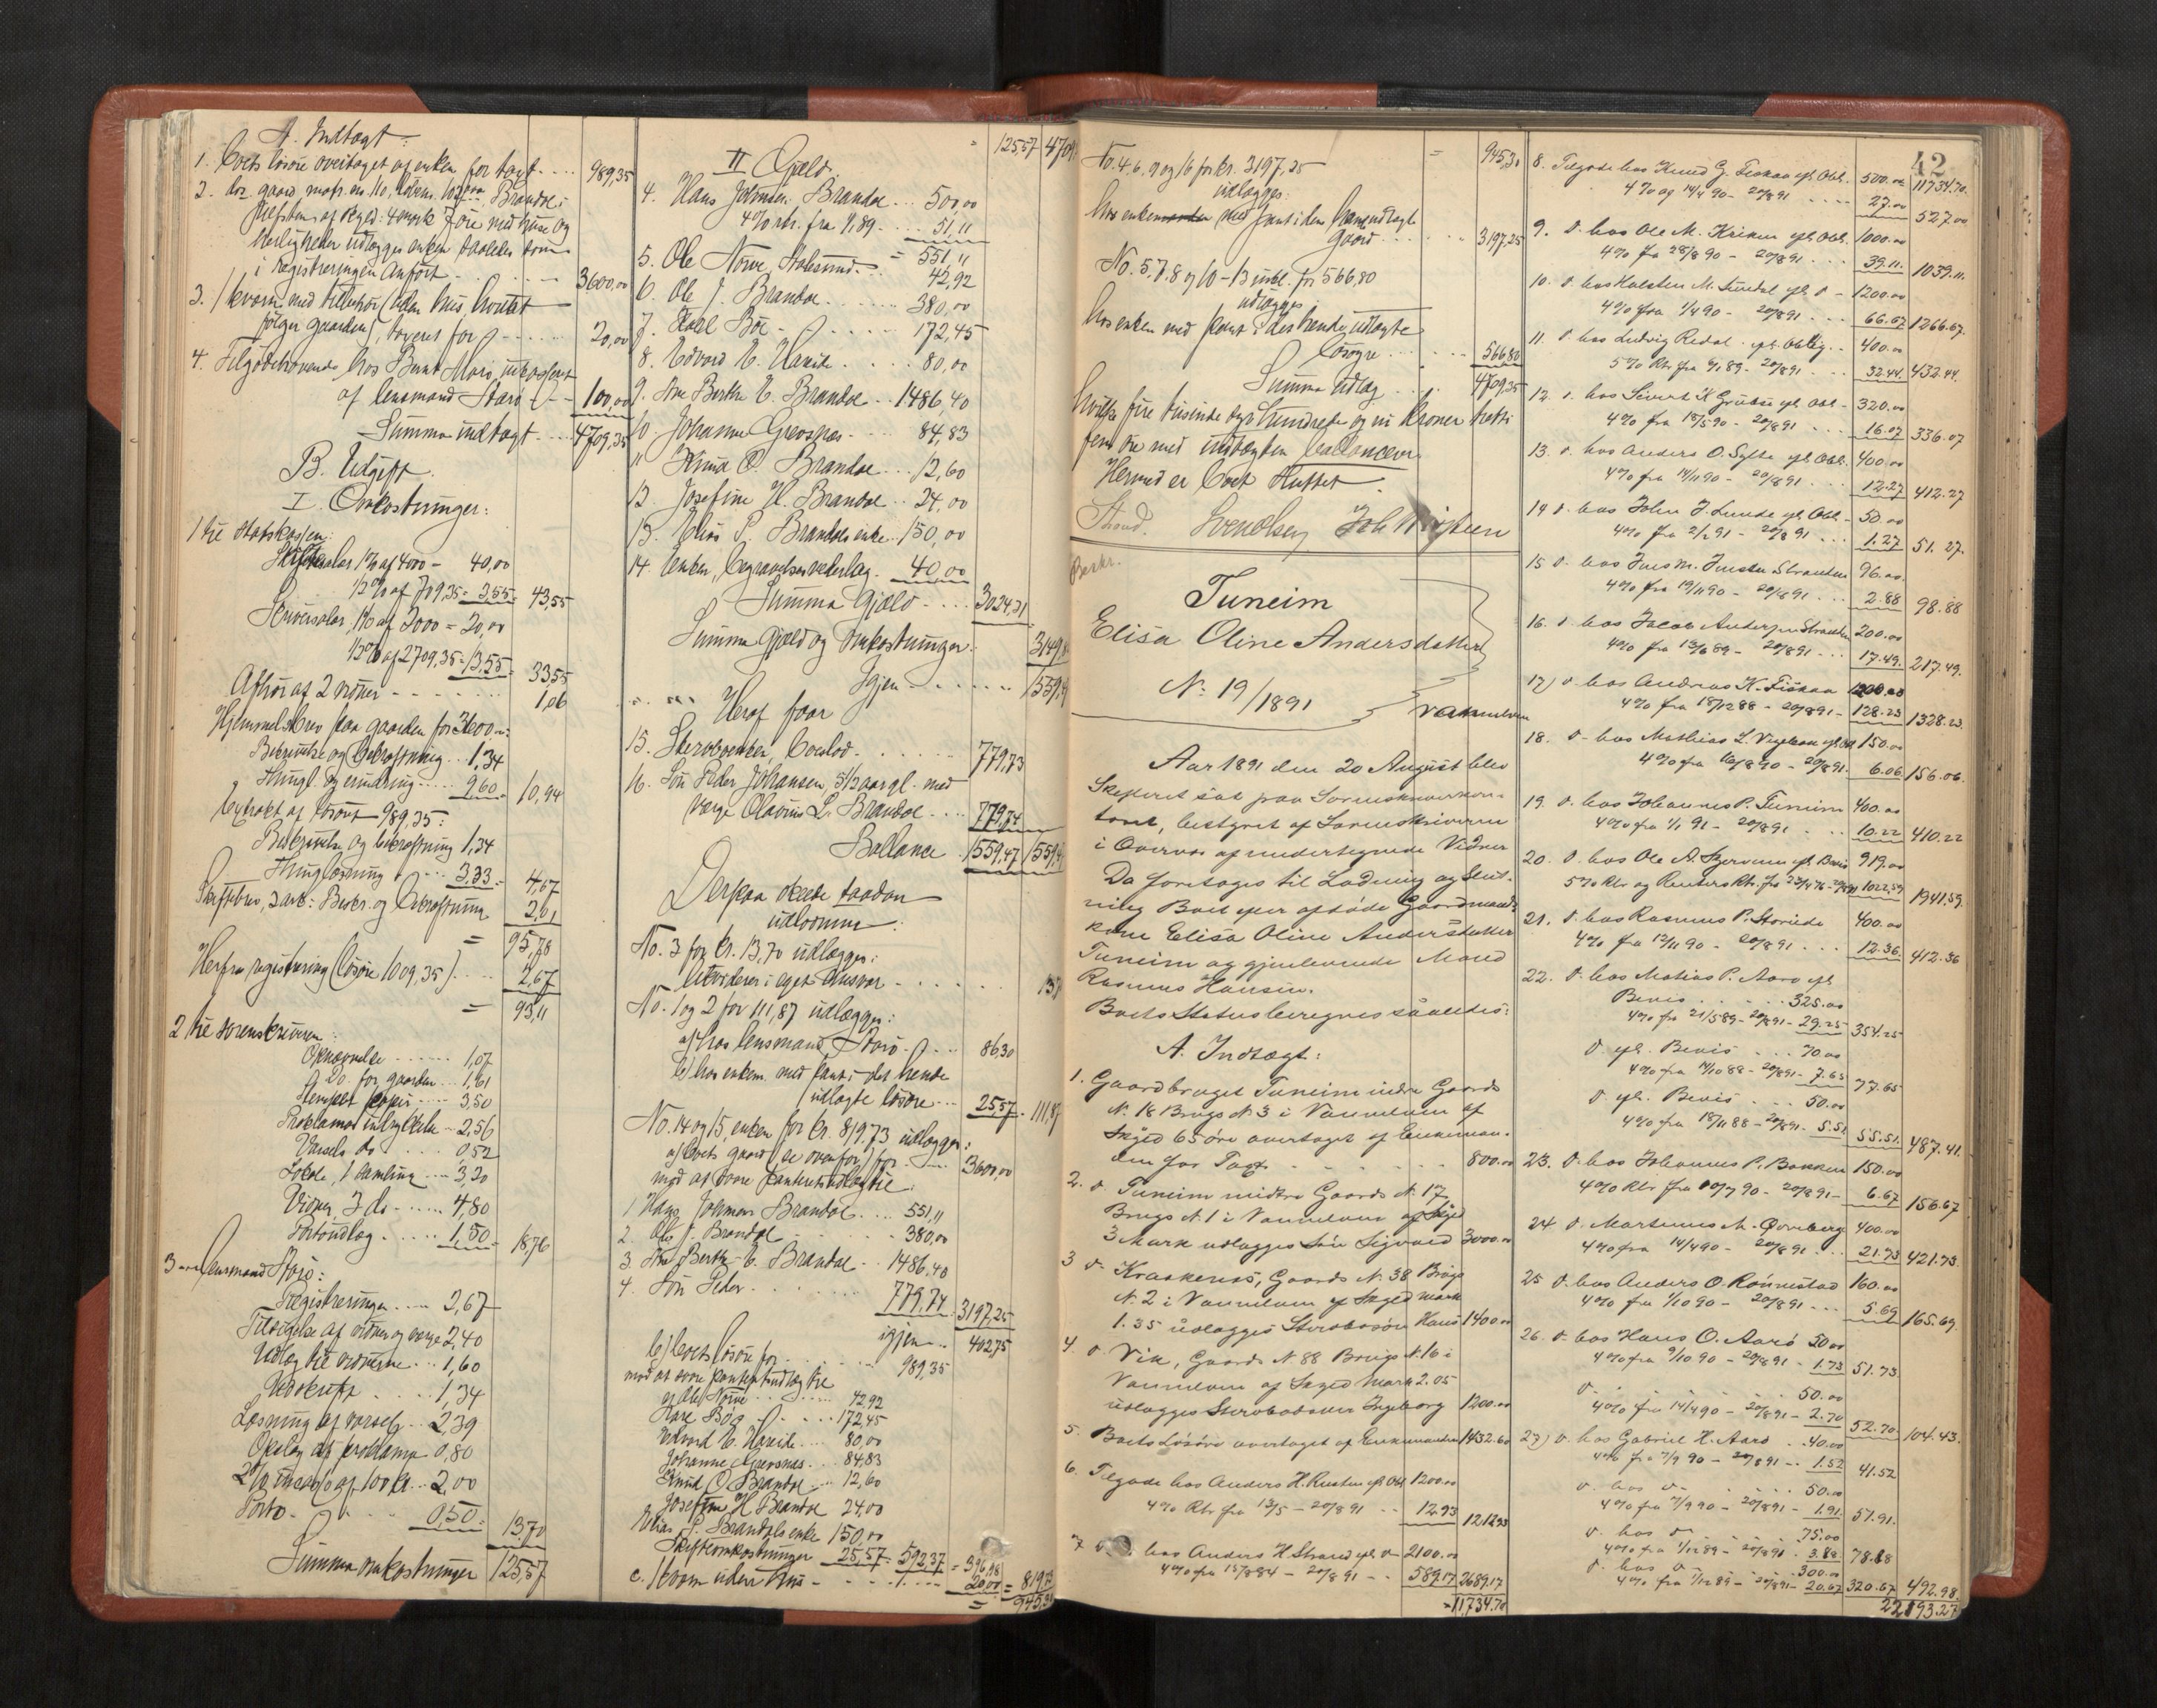 A. Indtægt:
1. Boets løsøre overtaget af enken for taxt .... 989,35
2. do. gaard matr. no. 10, løbeno. 102 Brandal
af skyld: 4 mark 7 øre med huse og
herligheder udlægges enken saaledes som
i registreringen anført . . . 3600,00
3. 1 kværn med tilbehør (uden hus, hvilket
følger gaarden), boveret for . . . . 20,00
4. Tilgodehavende hos Bernt Moro, inkasseret
af lensmand Storø . . . 100,00
Summa indtægt .... 4709,35
B. Udgift.
I Omkostninger:
1 til statskassen:
Skiftesalær 1% af 4000 = 40,00
1/2% af 709,35 = 3,55 = 43,55
Skriversalær, 1% af 2000 = 20,00
1/2% af 2709,35 = 13,55 = 33,55
Afhør af 2 vidner . . . . 1,06
Hjemmelsbrev paa gaarden for 3600,00:
Beskrivelse og bekræftning .. 1,34
Thingl. og erindring .... 9,60 = 10,94
Extrakt af løsøret 989,35:
Beskrivelse og bekræftning 1,34
Thinglæsning .... 3,33 = 4,67
Skiftebrev, 3 ark: Beskr. og Bekræftning 2,01
= 95,78
Herfra registrering (løsøre 1009,35) .... 2,67
= 93,11
2 til sorenskriveren:
Opnævnelse ...... 1,07
Do. for gaarden ... 1,61
Stemplet papir .... 3,50
Proklamas indrykkelse .. 2,56
Varsels do .... 0,52
Lokale, 1 samling .... 3,20
Vidner, 3 do ..... 4,80
Portoudlæg .... 1,50 = 18,76
3 lensmand Storø:
Registreringen .... 2,67
Tilsigelse af vidner og værge 2,40
Udlæg til vidnerne ... 1,60
Udskrift .... 1,34
Læsning af varsel .. 2,39
Opslag af proklama 0,80
2% incasso af 100 kr .. 2,00
Porto . . . . 0,50 = 13,70
Summa omkostninger 125,57
= 125,57 4709,
II Gjæld.
4. Hans Johansen Brandal ... 500,00
4% rtr. fra 1/1 89 .... 51,11
= 551,11
5. Ole Nørve, Aalesund ... 42,92
6. Ole J. Brandal ..... 380,00
7. Karl Bøe ..... 172,45
8. Edvard E. Hareide .... 80,00
9. Ane Berthe E. Brandal .. 1486,40
10 Johanne Grevsnes .... 84,83
11 Knud O. Brandal ... 12,60
12. Josefine H. Brandal .. 24,00
13. Elias P. Brandals enke .. 150,00
14. Enken, begravelsesvederlag . 40,00
Summa Gjæld .... 3024,31
Summa Gjæld og omkostninger 3149,8
Igjen ........ 1559,4
Heraf faar
15. Sterboenken boeslod ...... 779,73
16. Søn Peder Johansen, 5 1/2 aar gl. med
værge Olavus L. Brandal .... 779,74
Ballance 1559,47 1559,4
Derpaa skede saadan
udlodning:
No. 3 for kr. 13,70 udlægges:
likviderer i eget ansvar ...... 13,7
No. 1 og 2 for 111,87 udlægges:
a) hos lensmand Storø .... 86,30
b) hos enken med pant i det hende
udlagte løsøre ... 25,57 = 111,87
No. 14 og 15, enken for kr. 819,73 udlægges:
a) Boets gaard (se ovenfor) for .... 3600,00
mod at svare panteudlæg til:
1 Hans Johansen Brandal .... 551,11
2. Ole J. Brandal ..... 380,00
3. Ane Berthe E. Brandal .. 1486,40
4. Søn Peder ....... 779,74 3197,25
igjen .. 402,75
b) boets løsøre for ....... 989,35
mod at svare panteudlæg til
Ole Nørve ...... 42,92
Karl Bøe ..... 172,45
Edvard E. Hareide ... 80,00
Johanne Grevsnes ... 84,83
Knud O. Brandal ... 12,60
Josefine H. Brandal 24,00
Elias P. Brandals enke 150,00
Skifteomkostninger 25,57 = 592,37 = 396,98
c. 1 kværn uden hus ...... 20,00 = 819,73
= 945,30
No. 4, 6, 9 og 16 for kr. 3197,25 = 945,30
udlægges:
hos enken med pant i den hende udlagte
gaard ...... 3197,25
No. 5, 7, 8 og 10-13 inkl. for 566,80
udlægges:
hos enken med pant i det hende udlagte
løsøre ..... 566,80
Summa udlæg .... 4709,35
hvilke fire tusinde syv hundrede og ni Kroner tretti
fem øre med indtægten balancerer.
Hermed er boet sluttet.
Strand. Svendsen
Beskr.
Tuneim
Elisa Oline Andersdatter
No. 19/1891
Vannelven
Aar 1891 den 20 August blev
Skifteret sat paa Sorenskriverkon-
toret, bestyret af Sorenskriveren
i Overvær af undertegnede Vidner
Da foretoges til Lodning og Slut-
ning Boet efter afdøde Gaardmands
kone Elisa Oline Andersdatter
Tuneim og gjenlevende Mand
Rasmus Hansen.
Boets Status beregnes saaledes:
A. Indtægt:
1. Gaardbruget Tuneim indre Gaards
N. 16 Brugs N. 3 i Vannelven af
Skyld 65 øre overtaget af Enkeman-
den for Taxt . . . . . 800.00
2. d Tuneim midtre Gaards N. 17
Brugs N. 1 i Vannelven af Skyld
3 Mark udlægges Søn Sigvard 3000.00
3 d Kraakenes, Gaards N. 38 Brugs
N. 2 i Vannelven af Skyld mark
1.35 udlægges Sterbosøn Hans 1400.00
4. d Vik, Gaards N 88 Brugs N. 16 i
Vannelven af Skyld Mark 2.05
udlægges Sterbodatter Ingeborg 1200.00
5. Boets Løsøre overtaget af Enkemanden 1432.60
6. Tilgode hos Anders H. Rusten efl. Obl. 1200.00
4% Rtr fra 13/5 - 20/8 91 .. 12.93 1212.93
7. hos Anders H. Strand efl. d 2100.00
4% fra 15/8 84 - 20/8 91 .. 589.17 2689.17
11,734.70
42
8. Tilgode hos Knud G. Fiskaa efl. Obl. 500.00 11734.70
4% af 14/4 90 - 20/8 91 .... 27.00 527.00
9. d. hos Ole M. Kriken efl. Obl. 1000.00
4% fra 28/8 90 - 20/8 91 ... 39.11 1039.11.
10. d. hos Karsten M. Sundal efl. d - 1200.00
4% fra 1/4 90 - 20/8 91 ... 66.67 1266.67.
11. d. hos Ludvig Redal efl. Oblig. - 400.00
5% Rtr fra 6/1 89 - 20/8 91 ... 32.44. 432.44.
12. d. hos Sivert K. efl. Obl - 320.00
4% fra 18/5 90 - 20/8 91 ... 16.07 336.07
13. d. hos Anders O. Sylte efl. Obl. 400.00
4% fra 14/11 90 - 20/8 91 ... 12.27 412.27
14 d. hos John J. Lunde efl. Obl - 50.00
4% fra 2/1 91 - 20/8 91 ... 1.27 51.27.
15 d. hos Jens M. Strand 96.00.
4% fra 19/11 90 - 20/8 91 ... 2.88 98.88
16. d. hos Jacob Andersen Strand 200.00
4% fra 13/6 89 - 20/8 91 ... 17.49. 217.49.
17) d. hos Andreas K. Fiskaa 1200.00
4% fra 18/12 88 - 20/8 91 - 128.23 1328.23.
18. d. hos Mathias L. efl. Obl 150.00
4% fra 16/8 90 - 20/8 91. 6.06 156.06.
19. d. hos Johannes P. Tuneim 400.00
4% fra 1/1 91 - 20/8 91 .. 10.22 410.22
20. d. hos Ole A. efl. Bevis 919.00
5% Rtr og Renters Rtr. fra 1022.59 1941.59.
21. d. hos Rasmus P. Storeide 400.00
4% fra 12/11 90 - 20/8 91 ... 12.36. 412.36
22. d. hos Matias P. Aarø efl
Bevis ..... 325.00
4% fra 21/5 89 - 20/8 91 - 29.25 354.25
d efl. Bevis .. 70.00
4% fra 14/10 88 - 20/8 91 - 7.65 77.65
d efl. Bevis ... 50.00
4% fra 18/11 88 - 20/8 91 - 5.51 55.51. 487.41.
23. d. hos Johannes P. Bakken 150.00
4% Rtr fra 10/7 90 - 20/8 91 - 6.67 156.67
24 d. Martinus M. Øvreberg 400.00
4% fra 14/4 90 - 20/8 91 ... 21.73 421.73.
25 d. hos Anders O. Rønnestad 160.00
4% fra 1/10 90 - 20/8 91 ... 5.69 165.69.
26. d. hos Hans O. Aarø 50.00
4% fra 9/10 90 - 20/8 91 - 1.73 51.73.
d. . . . . 50.00
4% fra 14/4 90 - 20/8 91 - 2.70 52.70. 104.43.
27) d. hos Gabriel H. Aarø . 40.00
4% fra 7/9 90 - 20/8 91 - 1.52 41.52
d. hos d - . . . 50.00
4% fra 7/9 90 - 20/8 91 - 1.91 51.91.
d. hos d . . . 75.00
4% fra 1/12 89 - 20/8 91 . 3.88 78.88
d. hos d . . . 300.00
4% fra 1/12 89 - 20/8 91 - 20.67 320.67 492.98.
22193.27